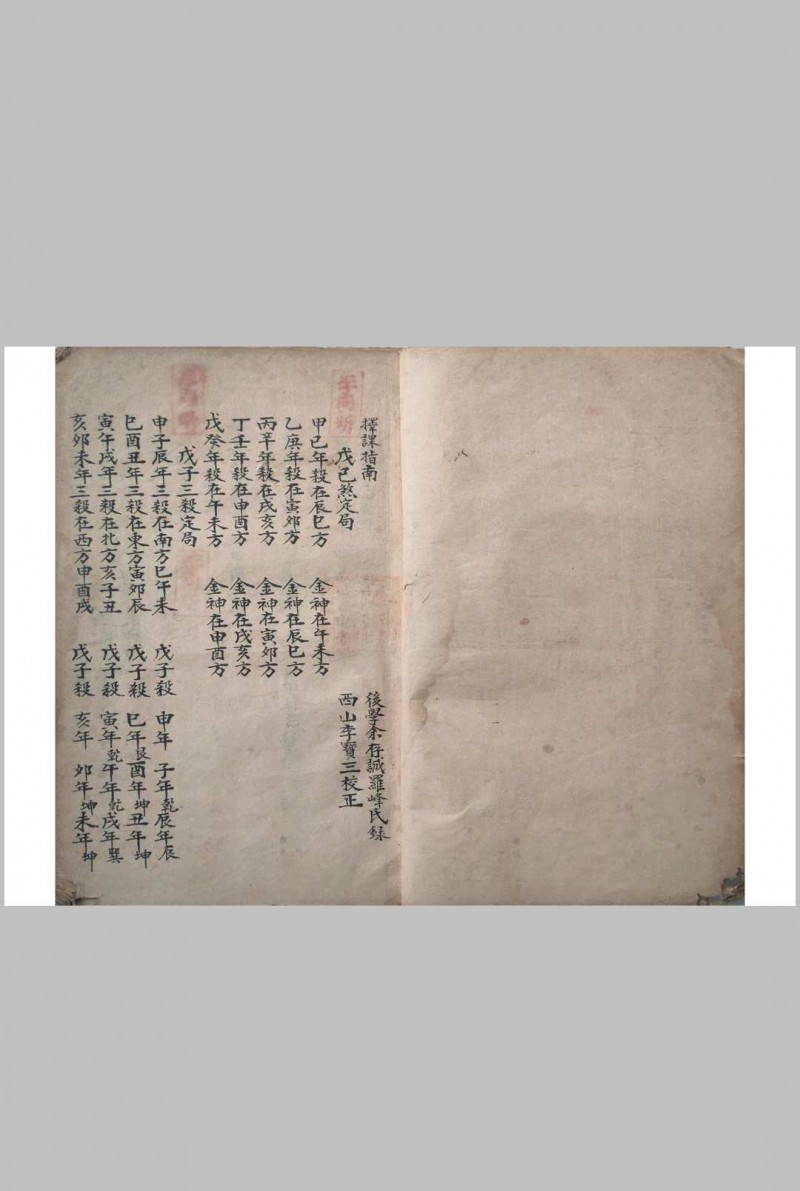 擇課指南
後學余存誠羅峰氏錄
戊己煞定局
西山李寶三校正
甲己年殺在辰巳方 金神在午未方
乙庚年殺在寅卯方 金神在辰巳方
丙辛年殺在戌亥方 金神在寅卯方
丁壬年殺在申酉方 金神在戌亥方
戊癸年殺在午未方 金神在申酉方
戊子三殺定局
申子辰年三殺在南方巳午未 戊子殺 申年 子年乾辰年辰
巳酉丑年三殺在東方寅卯辰 戊子殺 巳年艮酉年坤丑年坤
寅午戌年三殺在北方亥子丑 戊子殺 寅年乾午年乾戌年巽
亥卯未年三殺在西方申酉戌 戊子殺 亥年 卯年坤未年坤